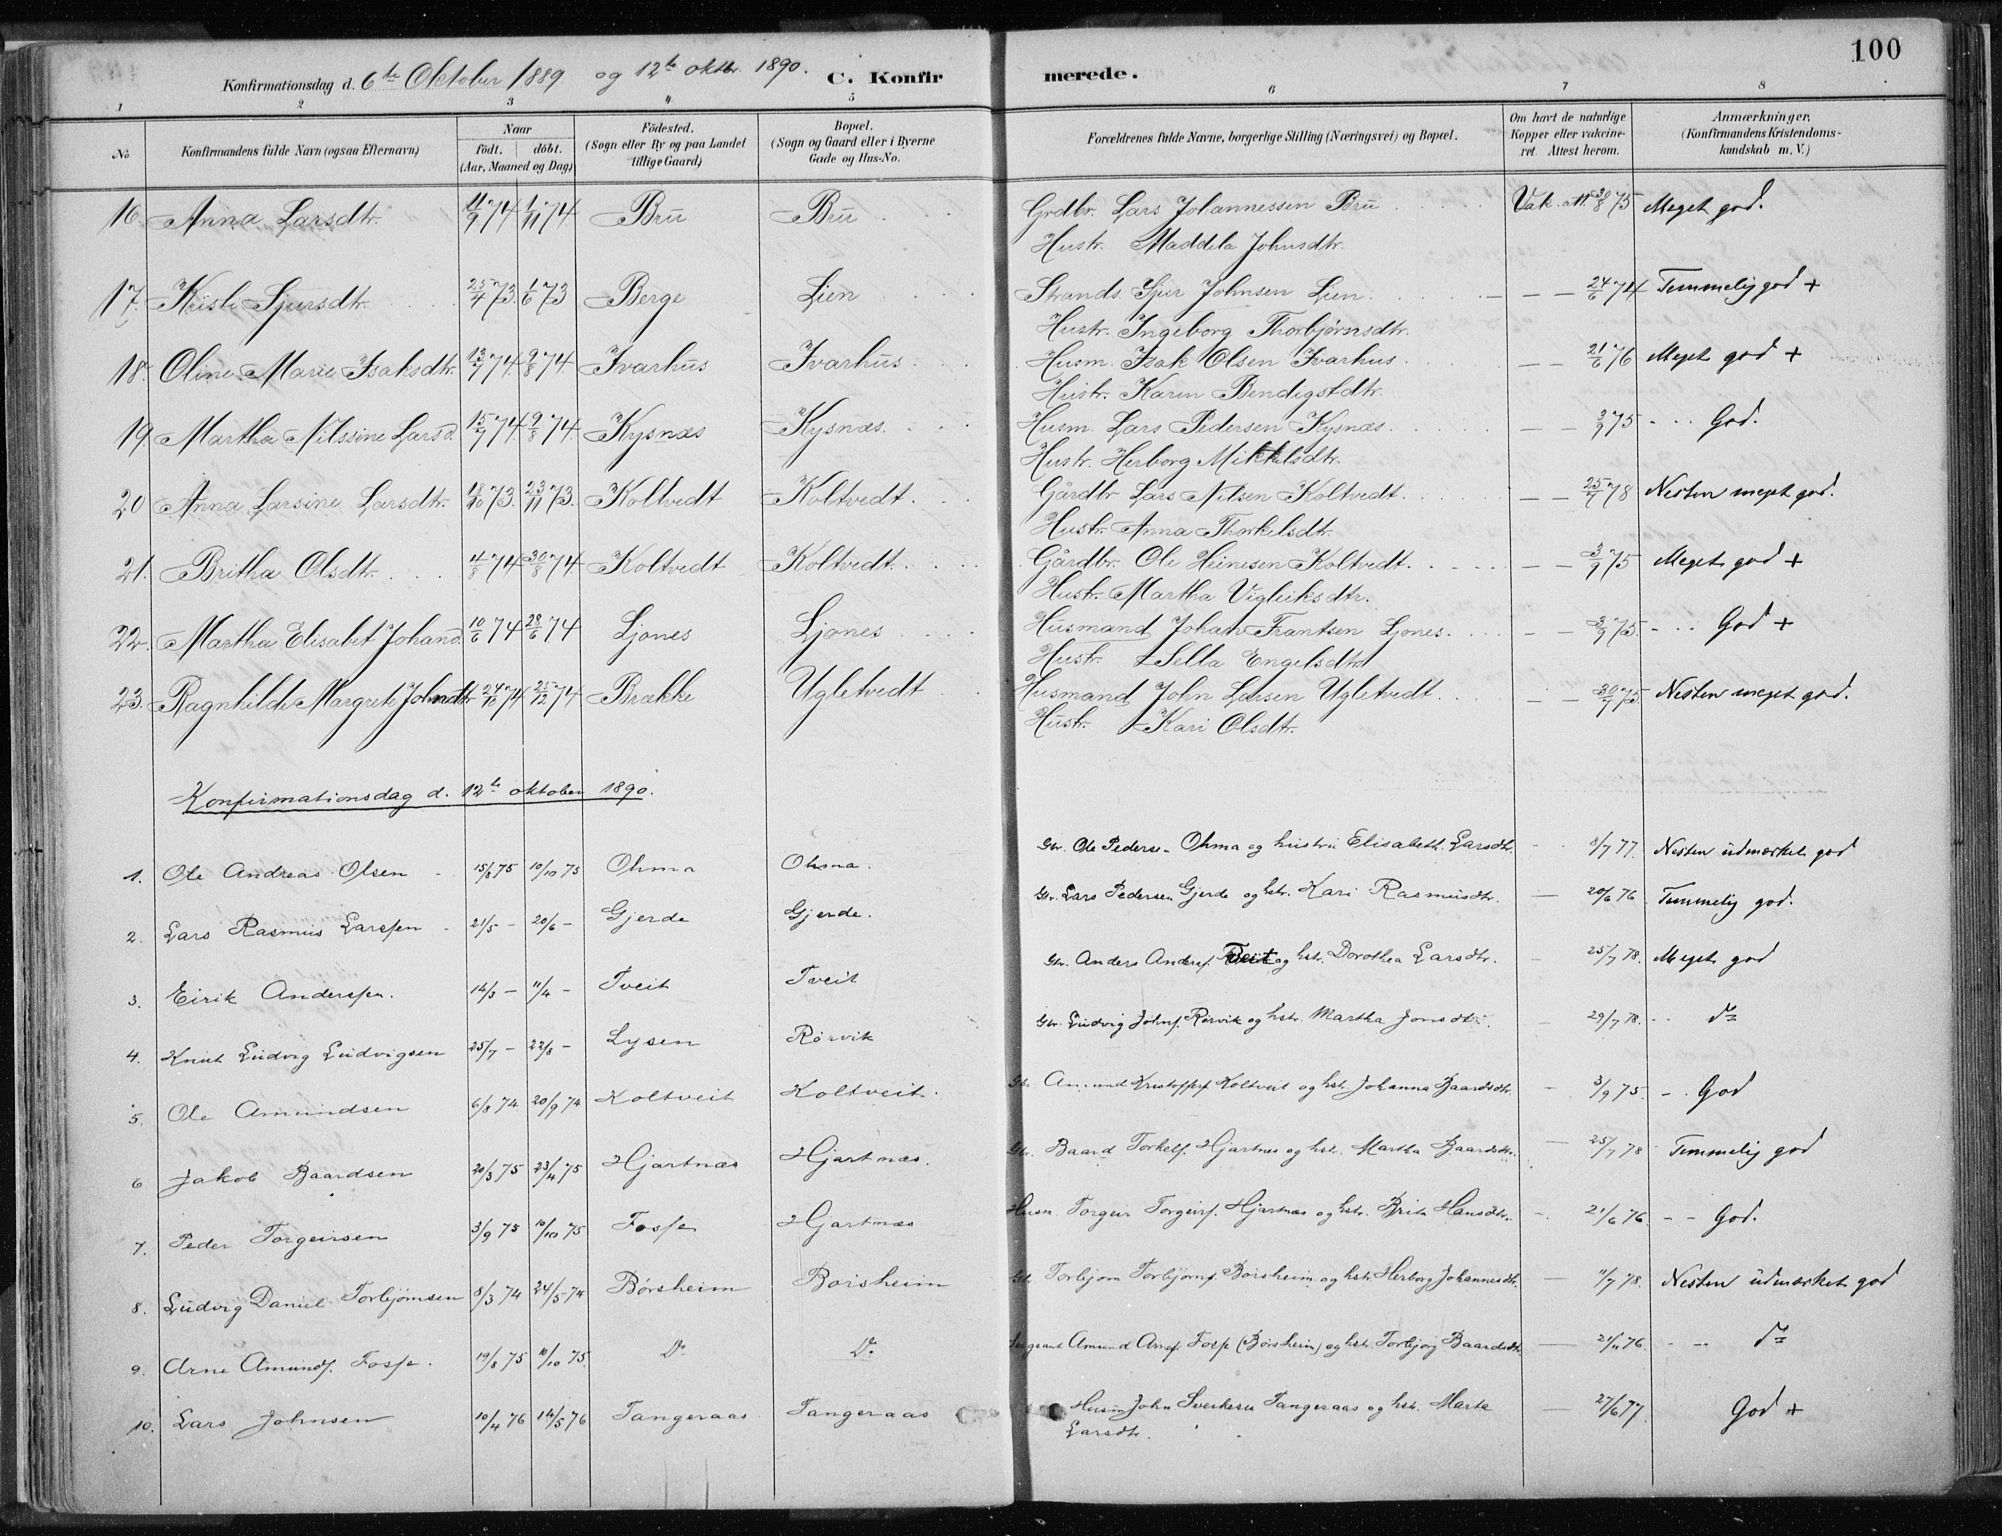 100
Konfirmationsdag d. 6te Oktober 1889. og 12te oktbr. 1890. C. Konfirmerede.
1 2 3 4 5 6 7 8
No Konfirmandens fulde Navn (ogsaa Efternavn) Naar födt. döbt. (Aar, Maaned og Dag) Födested. (Sogn eller By og paa Landet tillige Gaard) Bopæl. (Sogn og Gaard eller i Byerne Gade og Hus-No. Forældrenes fulde Navne, borgerlige Stilling (Næringsvei) og Bopæl. Om havt de naturlige Kopper eller vakcineret. Attest herom. Anmærkninger. (Konfirmandens Kristendomskundskab m. V.)
16. Anna Larsdtr. 11/9 74 1/11 74 Bru Bru Grdbr. Lars Johannessen Bru Vak. att. 3/8 75 Meget god.
Hustr. Maddela Johnsdtr.
17. Kristi Sjursdtr. 25/4 73. 1/6 73 Berge Lien Strands. Sjur Johnsen Lien — — 24/6 74 Temmelig god +
Hustr. Ingeborg Thorbjørnsdtr.
18. Oline Marie Isaksdtr. 13/7 74. 9/8 74. Ivarhus Ivarhus Husm. Isak Olsen Ivarhus — — 21/6 76 Meget god +
Hustr. Karen Bendigstdtr.
19. Martha Nilssine Larsd. 15/7 74. 9/8 74. Kysnæs Kysnæs. Husm. Lars Pedersen Kysnæs. — — 3/9 75 - - - God.
Hustr. Herborg Mikkelsdtr.
20 Anna Larsine Larsdtr. 18/10 73. 23/11 73. Koltvedt Koltvedt. Gårdbr Lars Nilsen Koltvedt. — — 25/7 78 Nesten meget god.
Hustr. Anna Thorkelsdtr.
21. Britha Olsdtr. 4/8 74 30/8 74 Koltvedt Koltvedt. Gårdbr. Ole Heinesen Koltvedt. — — 3/9 75 Meget god +
Hustr. Martha Vigleiksdtr.
22. Martha Elisabet Johand. 10/6 74 28/6 74 Ljones Ljones Husmand Johan Frantsen Ljones. — — 3/9 75. - - - God +
Hustr. Sella Engelsdtr
23. Ragnhilde Margrete Johndtr 24/10 74 25/12 74 Brække Ugletvedt Husmand John Larsen Ugletvedt — — 30/7 75. Nesten meget god.
Hustr. Kari Olsdtr.
Konfirmationsdag d. 12te oktober 1890.
1. Ole Andreas Olsen 15/8 75 10/10 75 Ohma Ohma. Gbr. Ole Pederse- Ohma og hustru Elisabeth Larsdtr. 8/7 77. Nesten udmærket god
2. Lars Rasmus Larssen 21/5 - 20/6 - Gjerde Gjerde. Gbr. Lars Pedersen Gjerde og hstr. Kari Rasmusdtr. — 20/6 76 Temmelig god.
3. Eirik Anderssen. 14/3 - 11/4 - Tveit Tveit Gbr. Anders Anders. Tveit og hstr. Dorothea Larsdtr. - 25/7 78. Meget god
4. Knut Ludvig Ludvigsen 25/7 - 22/8 - Lysen Rørvik Gbr. Ludvig Johns. Rørvik og hstr. Martha Jonsdtr. - 29/7 78. - - do
5. Ole Amundsen 6/8 74 20/9 74 Koltveit Koltveit. Gbr. Amund Kristoffers Koltveit og hstr. Johanna Baardsdtr. — 3/9 75. - . God
6 Jakob Baardsen 20/3 75 23/4 75 Hjartnæs Hjartnæs. Gbr. Baard Torkels. Hjartnes og hstr. Martha Baardsdtr. — 25/7 78 Temmelig god
7. Peder Torgeirsen 3/9 75 10/10 75 Fosse Hjartnæs Husm. Torgeir Torgeirs. Hjartnæs og hstr. Brita Hansdtr. -. 21/6 76. - - God.
8. Ludvig Daniel Torbjørnsen 8/3 74 24/5 74 Børsheim Borsheim Gbr. Torbjørn Torbjørns. Borsheim og hstr. Herborg Johannesdtr. — 11/7 78. Nesten udmærket god
9. Arne Amunds. Fosse. 19/8 75 10/10 75. Do Do Sergeant Amund Arnes. Fosse (Børsheim) og hstr. Torbjørg Baardsdtr. — 21/11 76 - -- do
10. Lars Johnsen 10/4 76 14/5 76 Tangeraas Tangeraas Husm John Sverkese Tangeraas og hstr. Marta — 27/6 77. God +
Larsdtr.